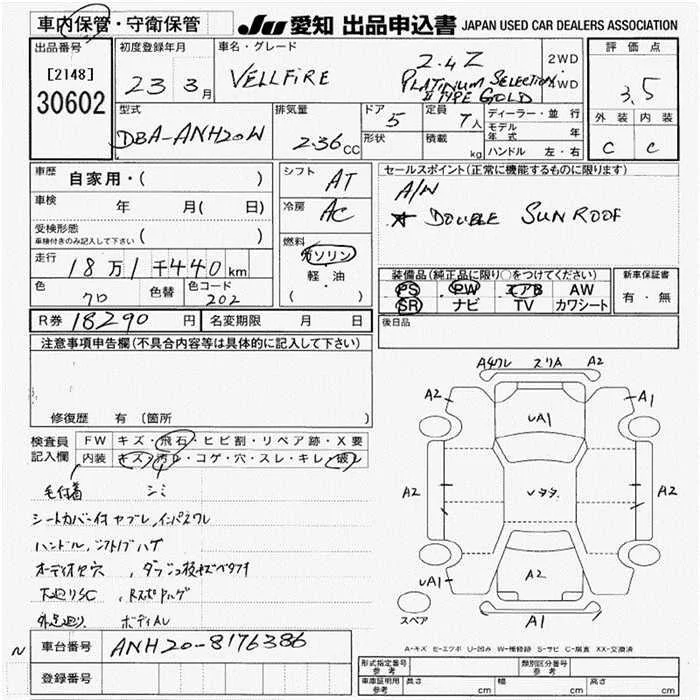 車内保管・守衛保管
JU 愛知 出品申込書 JAPAN USED CAR DEALERS ASSOCIATION
出品番号
[2148]
30602
初度登録年月
23 3月
車名・グレード
VELLFIRE 2.4Z
PLATINUM SELECTION
II TYPE GOLD
2WD
4WD
評価点
3.5
外装 内装
C C
型式
DBA-ANH20W
排気量
2.36 CC
ドア
5
形状
定員
7人
積載 kg
ディーラー・並行
モデル年式 年
ハンドル 左・右
車歴 自家用・( )
車検 年 月( 日)
受検形態
車検付きのみ記入して下さい ( )
走行 18万1千440km
色 クロ 色替 色コード 202
シフト AT
冷房 AC
燃料
ガソリン
軽・油
( )
セールスポイント(正常に機能するものに限ります)
A/W
★ DOUBLE SUNROOF
装備品(純正品に限り○をつけてください)
PS PW エアB AW
SR ナビ TV カワシート
新車保証書
有・無
後日品
R券 18290 円 名変期限 月 日
注意事項申告欄(不具合内容等は具体的に記入して下さい)
修復歴 有 〔箇所 〕
検査員記入欄
FW キズ・飛石・ヒビ割・リペア跡・X要
内装 キズ・汚れ・コゲ・穴・スレ・キレ・破レ
毛付着 シミ
シートカバー付 ヤブレ, インパネワレ
ハンドル, シフトノブハゲ
オーディオ穴
下廻りSC
外足廻り
車台番号 ANH20-8176386
登録番号
A4ワレ スリA A2
A2 A1
UA1
A2 A2
UA1 A2
A1
スペア
A-キズ E-エクボ U-凹み W-補修跡 S-サビ C-腐食 XX-交換済
形式指定番号 参考
類別区分番号 参考
車庫証明用 参考 長さ cm 幅 cm 高さ cm